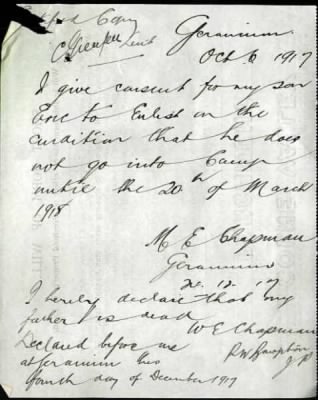 Copy
Lieut
Geranium
Oct 6 1917
I give consent for my son
Eric to Enlist on the
condition that he does
not go into Camp
until the 20th of March
1918
M E Chapman
Geranium
I hereby declare that my
father is dead
W E Chapman
Declared before me
at Geranium this
fourth day of December 1917
J P